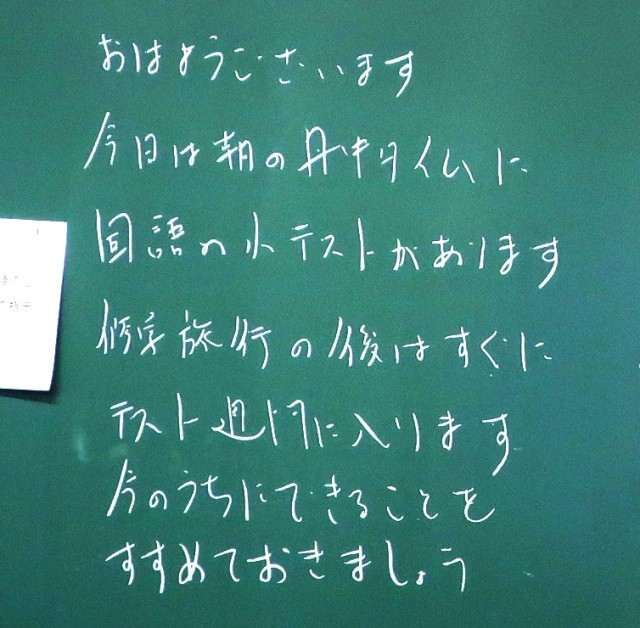 おはようございます
今日は朝の丹中タイムに
国語の小テストがあります
修学旅行の後はすぐに
テスト週間に入ります
今のうちにできることを
すすめておきましょう